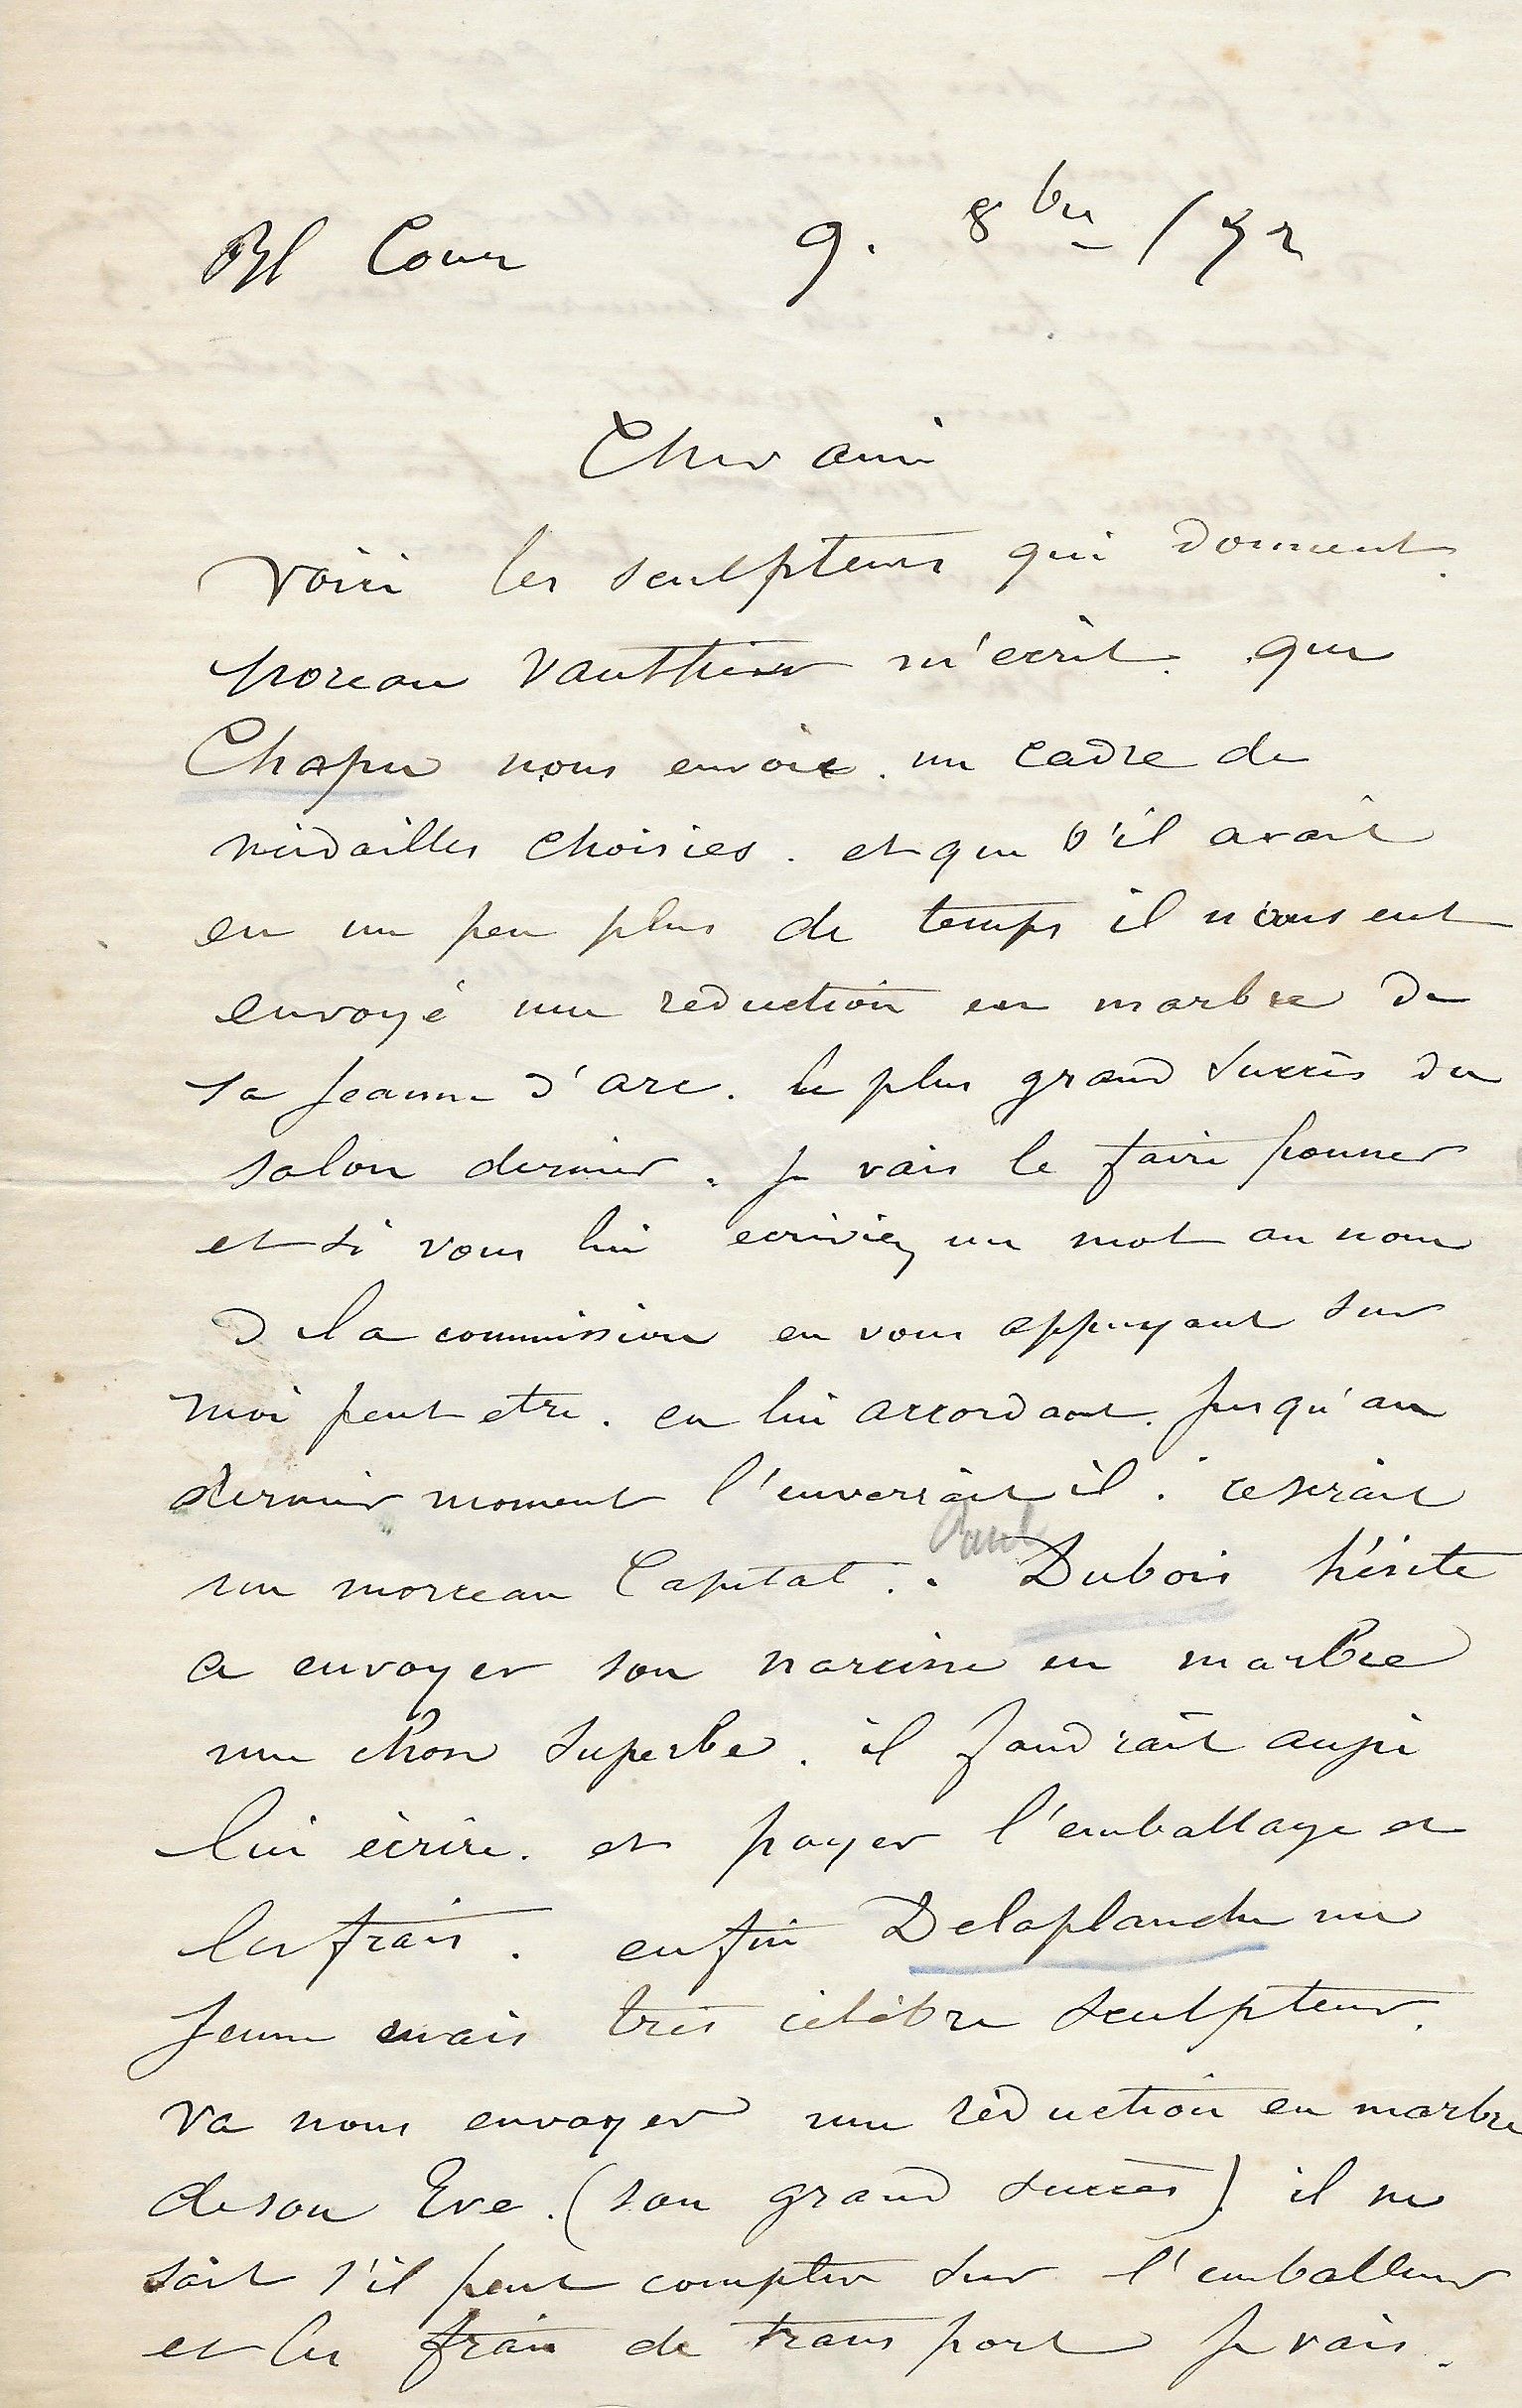 Bl Cour 9. 8bre /72
Cher ami
voici les sculpteurs qui donnent.
Moreau Vauthier m'ecrit. que
Chapu nous envoie. un cadre de
médailles choisies. et que s'il avait
eu un peu plus de temps il nous eut
envoyé une reduction en marbre de
sa Jeanne d'arc. le plus grand succès du
salon dernier. Je vais le faire pousser
et si vous lui ecriviez un mot au nom
de la commission en vous appuyant sur
moi peut etre. en lui accordant. jusqu'au
dernier moment l'enverrait il. ce serait
un morceau Capital.. Paul Dubois hésite
a envoyer son narcisse en marbre
une chose superbe. il faudrait aussi
lui écrire. et payer l'emballage et
les frais. enfin Delaplanche un
jeune mais très célèbre sculpteur.
va nous envoyer une réduction en marbre
de son Eve. (son grand succès) il ne
sait s'il peut compter sur l'emballeur
et les frais de transport Je vais.